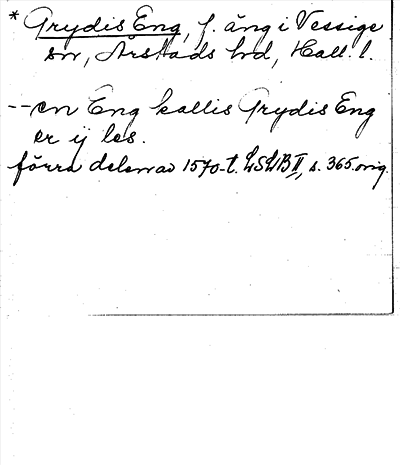 * Grydis Eng, f. äng i Vessige
sn, Årstads hd, Hall. l.
--en Eng kallis Grydis Eng
er ij les.
förra delen av 1570-t. LSLB II, s. 365. orig.